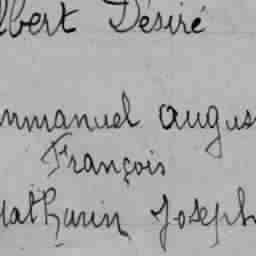 lbert Désiré
mmanuel Augus
François
Mathurin Joseph